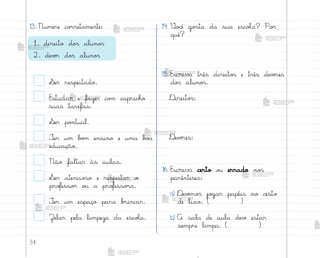 13. Numere corretamente:
1. direito dos alunos
2. dever dos alunos
Ser respeitado.
Estudar e fazer com capricho
suas tarefas.
Ser pontual.
Ter um bom ensino e uma boa
educação.
Não faltar às aulas.
Ser atencioso e respeitar o
professor ou a professora.
Ter um espaço para brincar.
Zelar pela limpeza da escola.
34
14. Você gosta da sua escola? Por
quê?
15. Escreva três direitos e três deveres
dos alunos.
Direitos:
Deveres:
16. Escreva certo ou errado nos
parênteses:
a) Devemos jogar papéis no cesto
de lixo. ( )
b) A sala de aula deve estar
sempre limpa. ( )